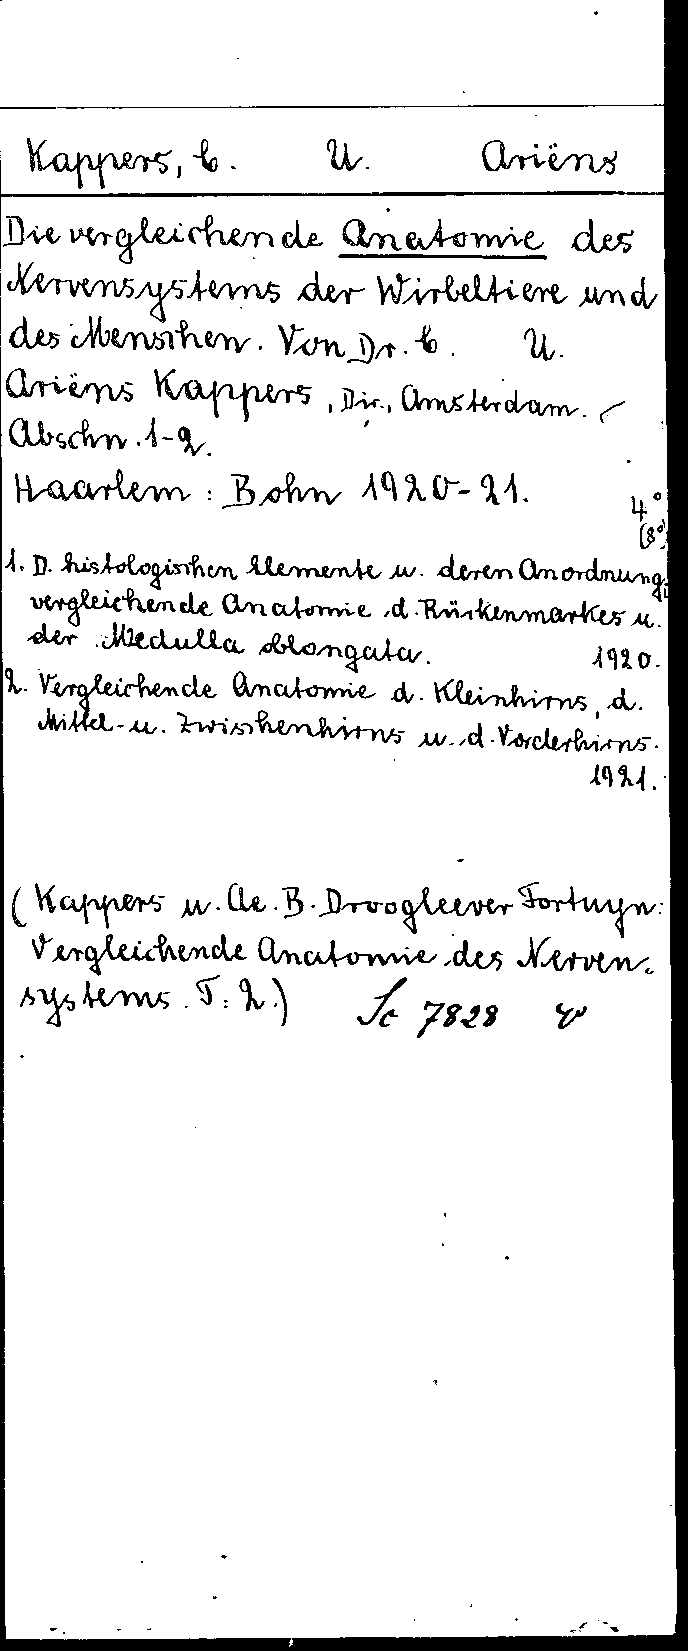 Kappers, C. U. Ariëns
Die vergleichende Anatomie des
Nervensystems der Wirbeltiere und
des Menschen. Von Dr. C. U.
Ariëns Kappers, Dir., Amsterdam.
Abschn. 1-2.
Haarlem: Bohn 1920-21.
4°
(8°)
1. D. histologischen Elemente u. deren Anordnung,
vergleichende Anatomie d. Rückenmarkes u.
der Medulla oblongata. 1920.
2. Vergleichende Anatomie d. Kleinhirns, d.
Mittel- u. Zwischenhirns u. d. Vorderhirns.
1921.
(Kappers u. Ae. B. Droogleever Fortuyn:
Vergleichende Anatomie des Nerven-
systems. T. 2.) Sc 7828